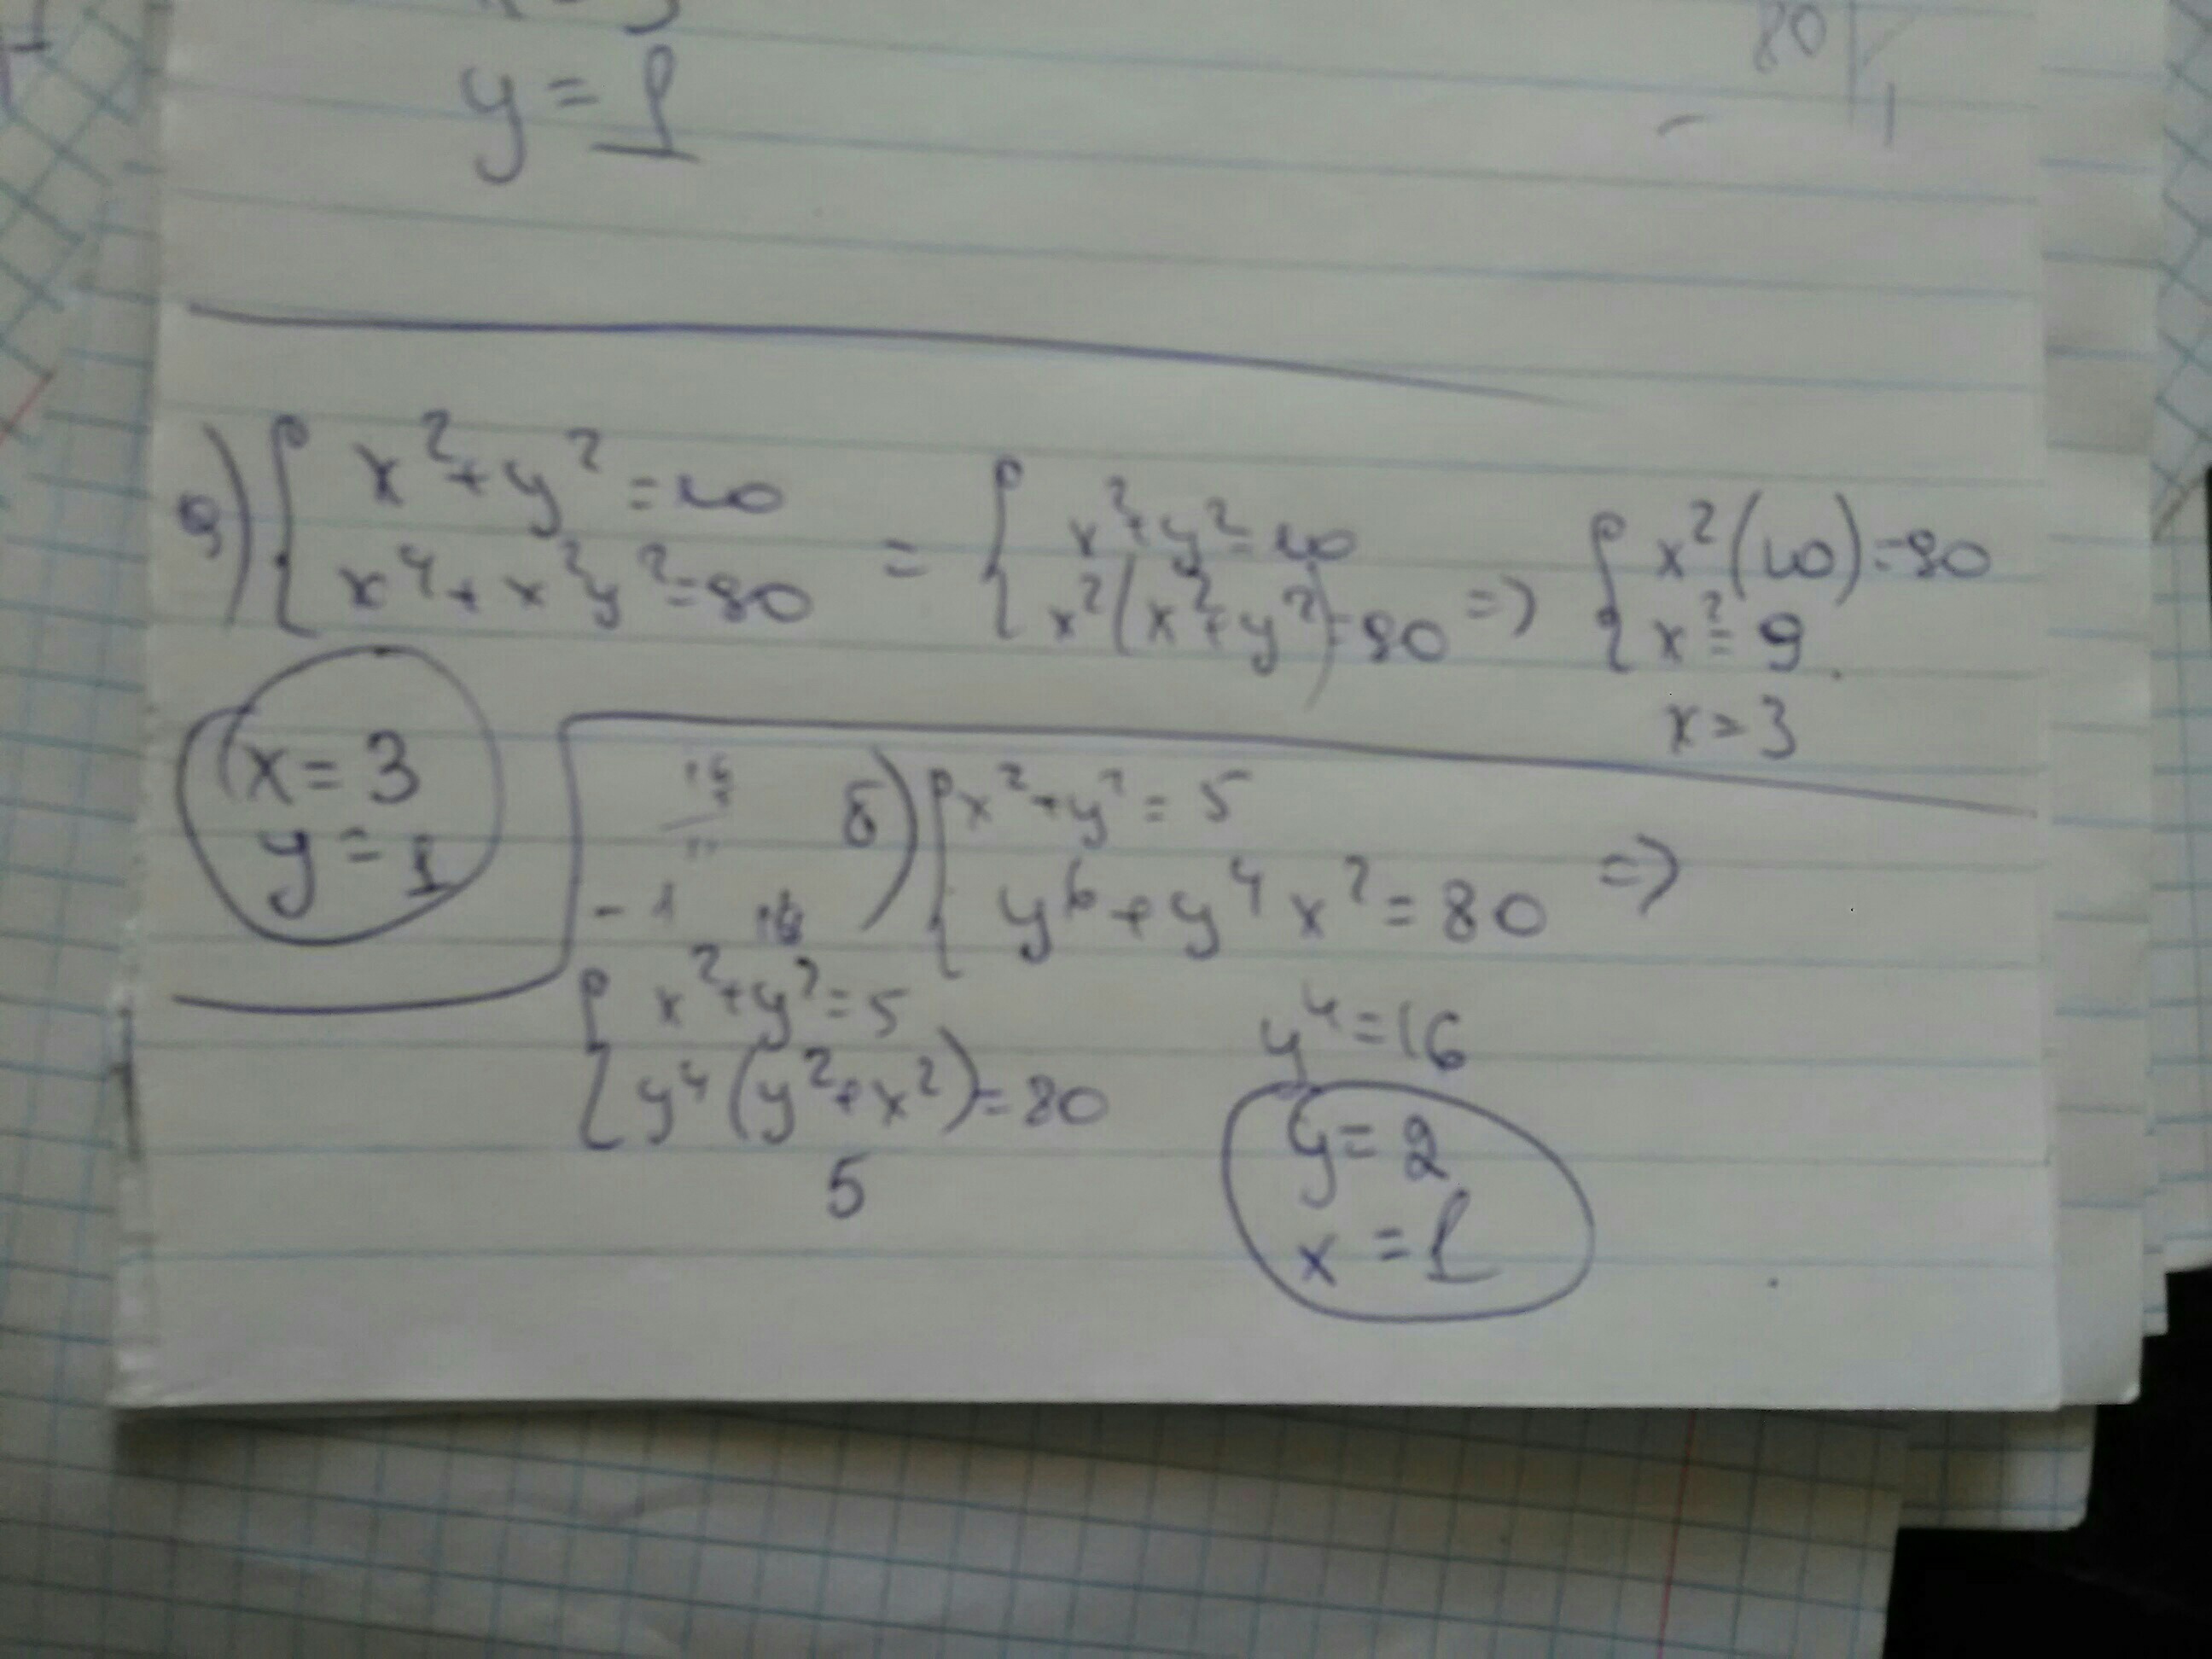 y = 1
80
a) { x² + y² = 10
x⁴ + x²y² = 80
= { x² + y² = 10
x²(x² + y²) = 90
=> { x²(10) = 90
x² = 9
x = 3
x = 3
y = 1
б) { x² + y² = 5
y⁶ + y⁴x² = 80 =>
{ x² + y² = 5
y⁴(y² + x²) = 80
5
y⁴ = 16
y = 2
x = 1